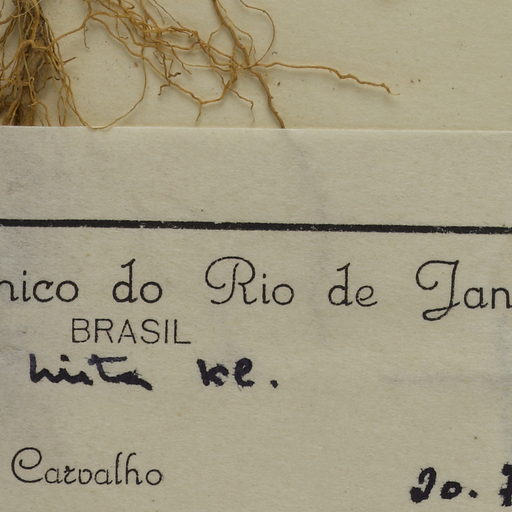 nico do Rio de Jan
BRASIL
hirta Kl.
Carvalho
20. 7